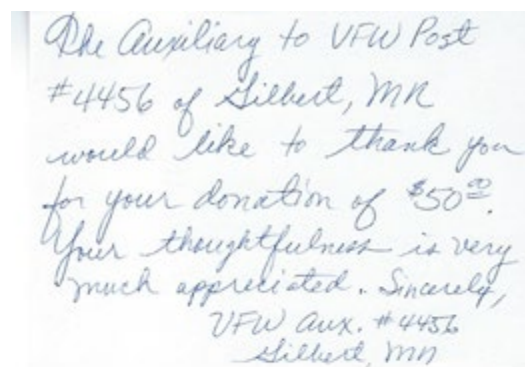 The Auxiliary to VFW Post
#4456 of Gilbert, MN
would like to thank you
for your donation of $50.00.
Your thoughtfulness is very
much appreciated. Sincerely,
VFW Aux. #4456
Gilbert, MN